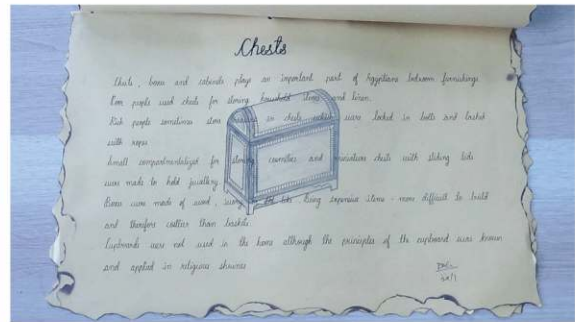 Chests
Chests, boxes and cabinets plays an important part of Egyptians bedroom furnishings
Poor people used chests for storing household items and linen.
Rich people sometimes store in chests which were locked in bolts and
with ropes
Small compartmentalized for storing cosmetics and miniature chests with sliding lids
were made to hold jewellery
Boxes were made of wood, being expensive items - more difficult to build
and therefore costlier than baskets.
Cupboards were not used in the home although the principles of the cupboard were known
and applied in religious shrines